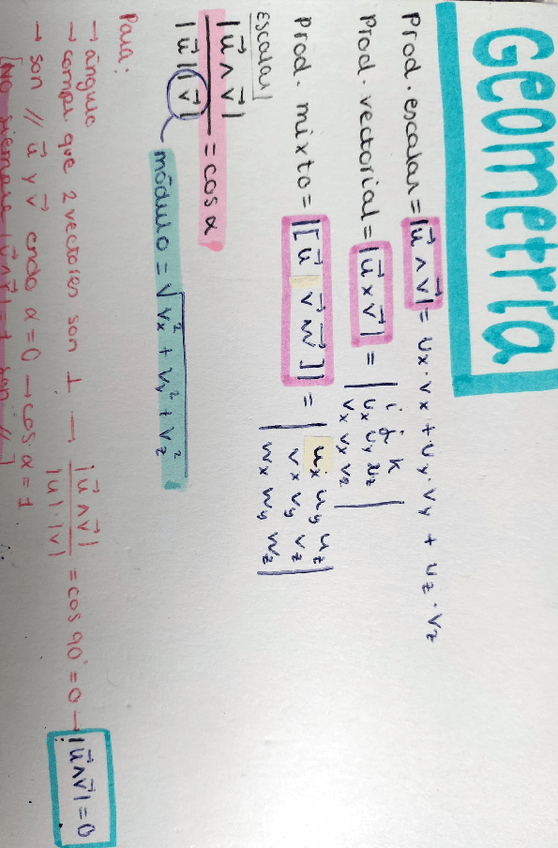 Geometría
prod. escalar = |u⃗ ∧ v⃗| = ux·vx + uy·vy + uz·vz
prod. vectorial = |u⃗ × v⃗| = | i j k
ux uy uz
vx vy vz |
prod. mixto = |[u⃗ v⃗ w⃗]| = | ux uy uz
vx vy vz
wx wy wz |
ESCALAR
|u⃗ ∧ v⃗| / |u⃗| |v⃗| = cos α
módulo = √vx² + vy² + vz²
Para:
→ ángulo
→ compr que 2 vectores son ⊥ → |u⃗ ∧ v⃗| / |u|·|v| = cos 90° = 0 → |u⃗ ∧ v⃗| = 0
→ son // u⃗ y v⃗ cndo α = 0 → cos α = 1
[No siempre |u⃗ ∧ v⃗| = 1 son //]